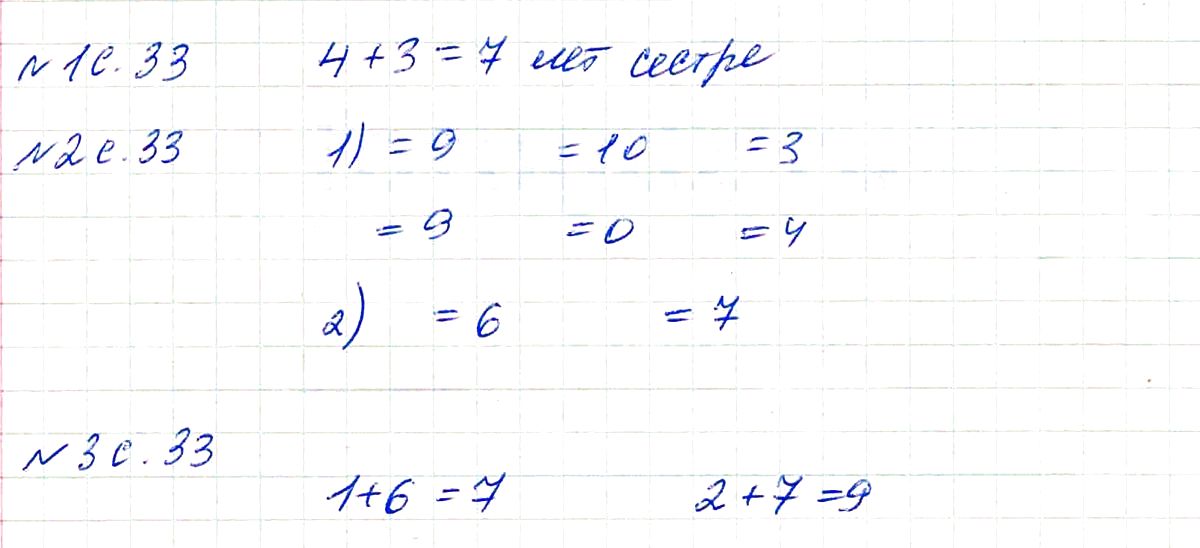 №1 с. 33 4 + 3 = 7 лет сестре
№2 с. 33 1) = 9 = 10 = 3
= 9 = 0 = 4
2) = 6 = 7
№3 с. 33
1+6 = 7 2 + 7 = 9